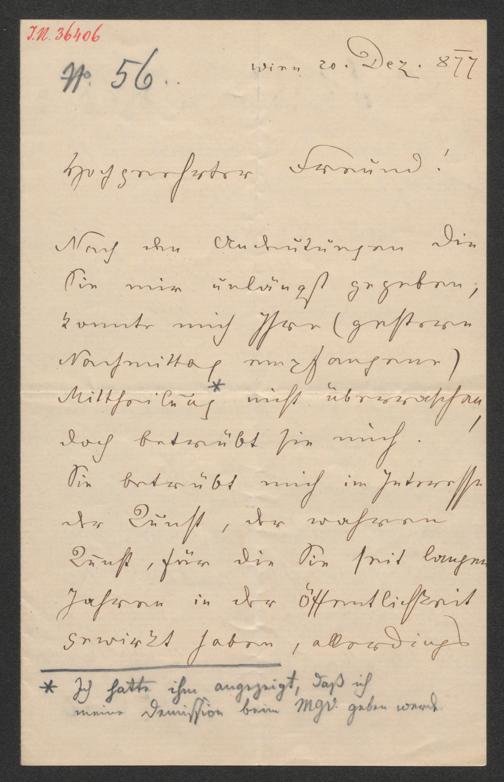 I.N. 36406
No. 56.
Wien 20. Dez. 877
Hochgeehrter Freund!
Nach den Andeutungen die
Sie mir unlängst gegeben,
konnte mich Ihre (gestern
Nachmittag empfangene)
Mittheilung* nicht überraschen,
doch betrübt sie mich.
Sie betrübt mich im Interesse
der Kunst, der wahren
Kunst, für die Sie seit langen
Jahren in der Öffentlichkeit
gewirkt haben, allerdings
* Ich hatte ihm angezeigt, daß ich
meine Demission beim MGV. geben werde